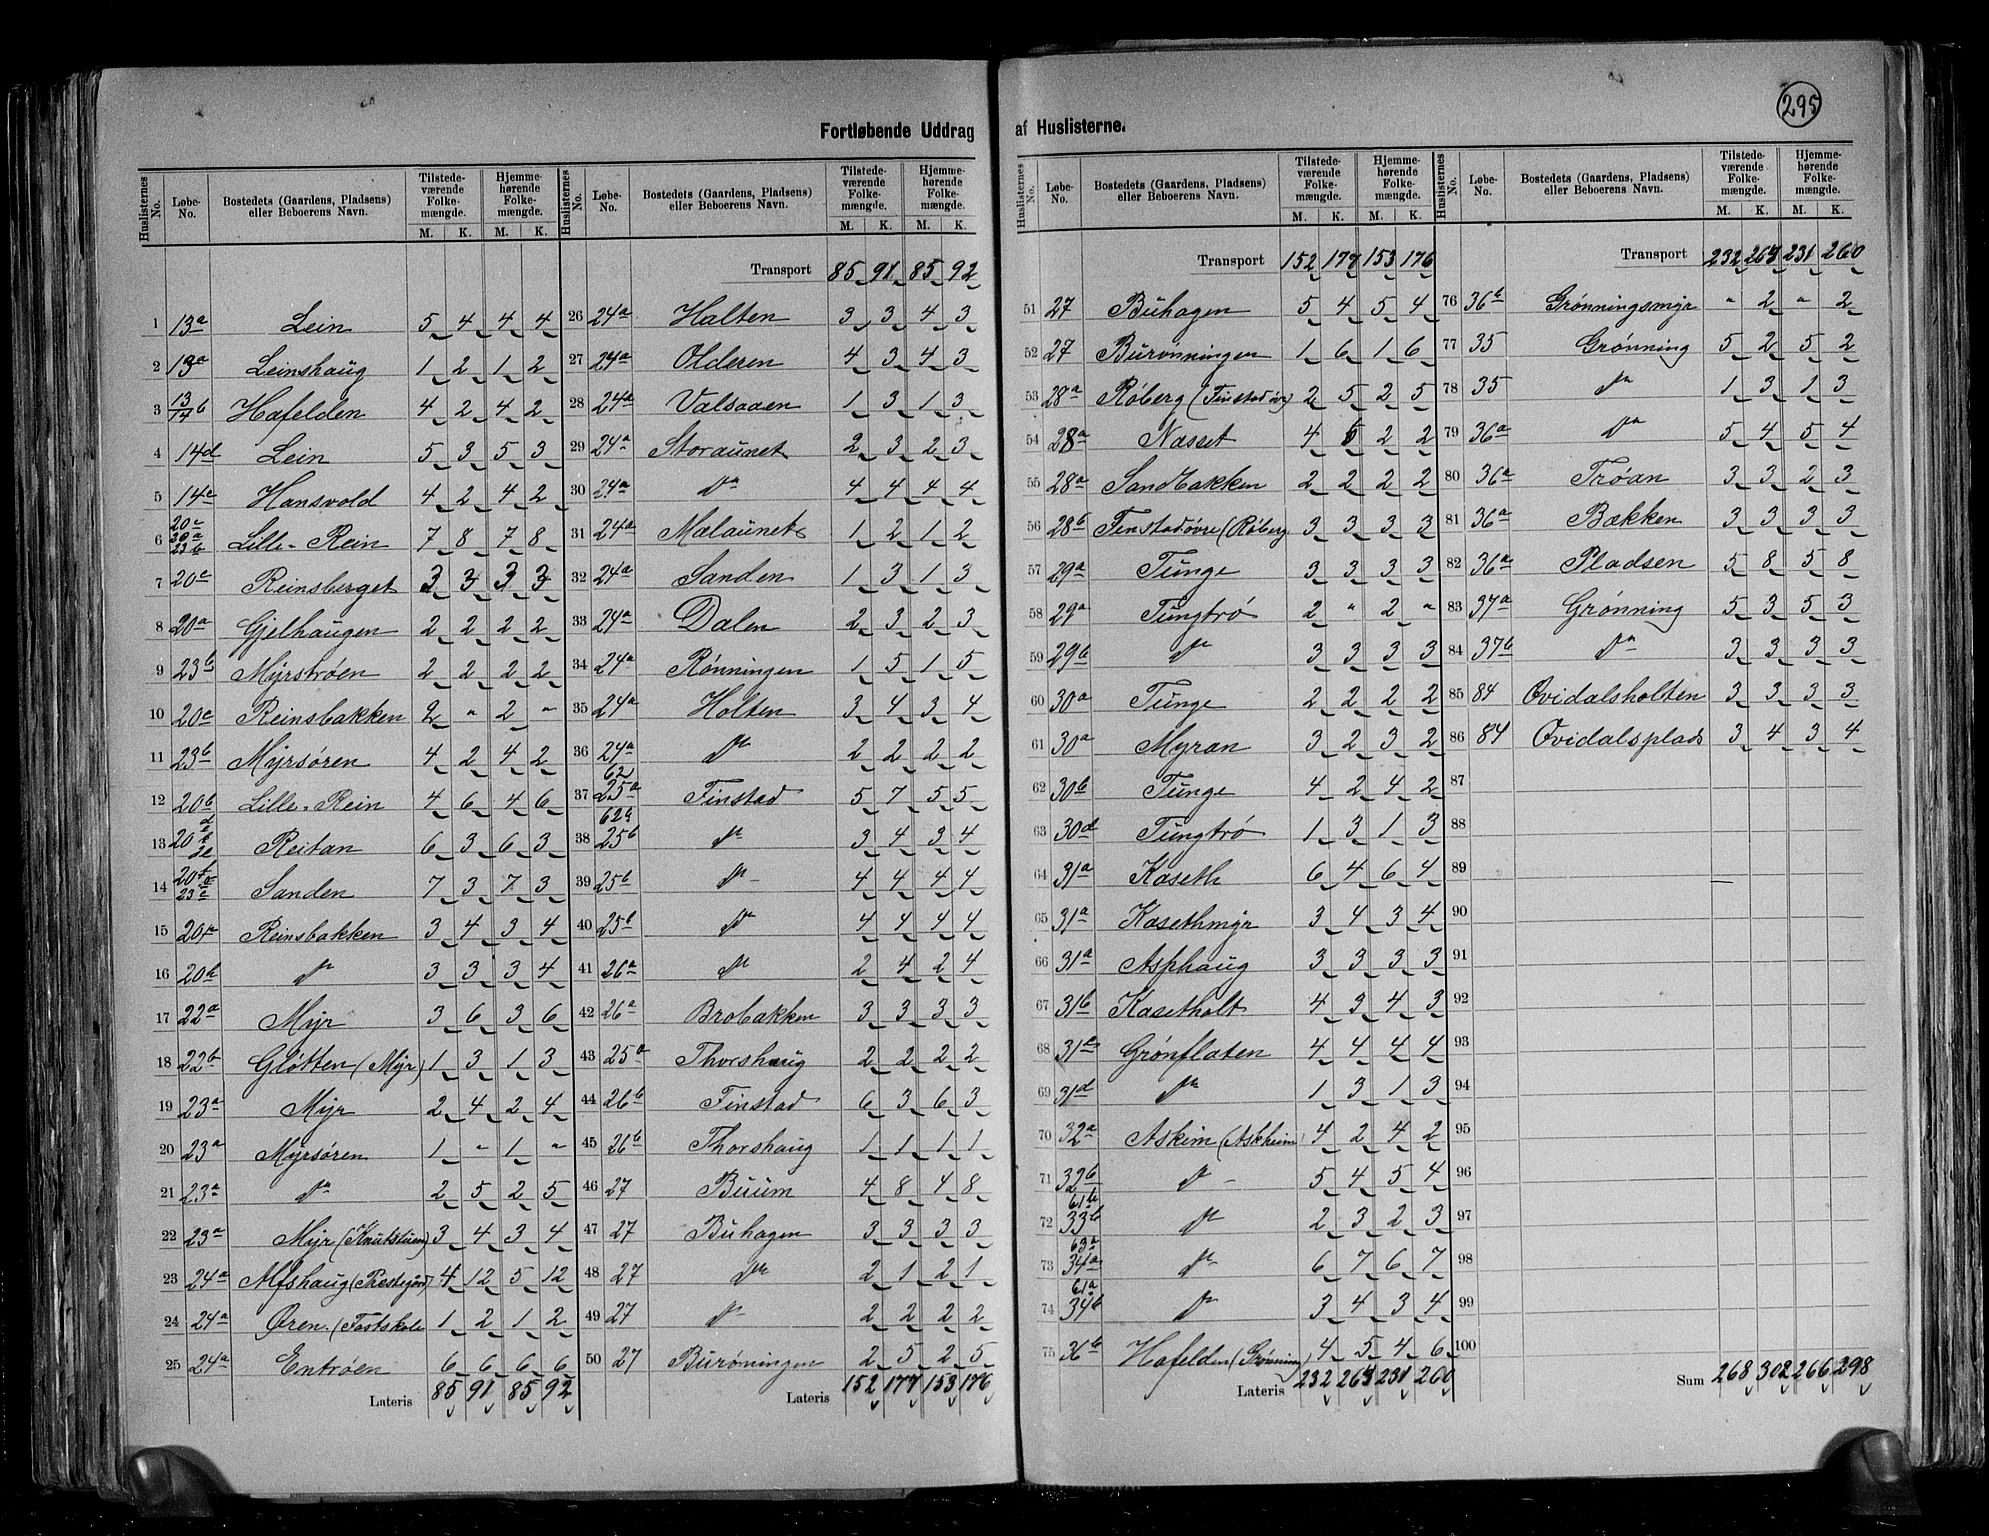 295
Fortløbende Uddrag af Huslisterne.
Huslisternes No. Løbe-No. Bostedets (Gaardens, Pladsens) eller Beboerens Navn. Tilstedeværende Folkemængde. M. K. Hjemmehørende Folkemængde. M. K.
1 13a Lein 5 4 4 4
2 13a Leinshaug 1 2 1 2
3 13/14 b Hafelden 4 2 4 2
4 14d Lein 5 3 5 3
5 14c Hansvold 4 2 4 2
6 23b Lille-Rein 7 8 7 8
7 20c Reinsberget 3 3 3 3
8 20a Gjelhaugen 2 2 2 2
9 23b Myrstrøen 2 2 2 2
10 20c Reinsbakken 2 " 2 "
11 23b Myrsøren 4 2 4 2
12 20b Lille-Rein 4 6 4 6
13 20 Reitan 6 3 6 3
14 23c Sanden 7 3 7 3
15 Reinsbakken 3 4 3 4
16 20h do 3 3 3 4
17 22a Myr 3 6 3 6
18 22b Gløtten (Myr) 1 3 1 3
19 23a Myr 2 4 2 4
20 23a Myrsøren 1 " 1 "
21 23a do 2 5 2 5
22 23a Myr (Knutstuen) 3 4 3 4
23 24a (Prestegård) 4 12 5 12
24 24a Øren. (Fastskole 1 2 1 2
25 24a Entrøen 6 6 6 6
Lateris 85 91 85 92
Huslisternes No. Løbe-No. Bostedets (Gaardens, Pladsens) eller Beboerens Navn. Tilstedeværende Folkemængde. M. K. Hjemmehørende Folkemængde. M. K.
Transport 85 91 85 92
26 24a Halten 3 3 4 3
27 24a Olderen 4 3 4 3
28 24a Valsaaen 1 3 1 3
29 24a Storaunet 2 3 2 3
30 24a do 4 4 4 4
31 24a Mælaunet 1 2 1 2
32 24a Sanden 1 3 1 3
33 24a Dalen 2 3 2 3
34 24a Rønningen 1 5 1 5
35 24a Holten 3 4 3 4
36 24a do 2 2 2 2
37 62 25a Finstad 5 7 5 5
38 62a 25b do 3 4 3 4
39 25b do 4 4 4 4
40 25b do 4 4 4 4
41 26a do 2 4 2 4
42 26a Brobakken 3 3 3 3
43 25a Thorshaug 2 2 2 2
44 26b Finstad 6 3 6 3
45 26b Thorshaug 1 1 1 1
46 27 Buum 4 8 4 8
47 27 Buhagen 3 3 3 3
48 27 do 2 1 2 1
49 27 do 2 2 2 2
50 27 Burøningen 2 5 2 5
Lateris 152 177 153 176
Huslisternes No. Løbe-No. Bostedets (Gaardens, Pladsens) eller Beboerens Navn. Tilstedeværende Folkemængde. M. K. Hjemmehørende Folkemængde. M. K.
Transport 152 177 153 176
51 27 Buhagen 5 4 5 4
52 27 Burönningen 1 6 1 6
53 28a Røberg (Finstadøvr) 2 5 2 5
54 28a Næsset 4 2 2
55 28a Sandbakken 2 2 2 2
56 28b Finstadøvre (Røberg 3 3 3 3
57 29a Tunge 3 3 3 3
58 29a Tungtrø 2 " 2 "
59 29b do 3 3 3 3
60 30a Tunge 2 2 2 2
61 30a Myran 3 2 3 2
62 30b Tunge 4 2 4 2
63 30d Tungtrø 1 3 1 3
64 31a Kaseth 6 4 6 4
65 31a Kasethmyr 3 4 3 4
66 31a Asphaug 3 3 3 3
67 31b Kasetholt 4 3 4 3
68 31c Grønflaten 4 4 4 4
69 31d do 1 3 1 3
70 32a Askim (Askheim) 4 2 4 2
71 32b do 5 4 5 4
72 61b 33b do 2 3 2 3
73 63a 34a do 6 7 6 7
74 61a 34b do 3 4 3 4
75 36b Hafelden (Grønning) 4 5 4 6
Lateris 232 231 260
Huslisternes No. Løbe-No. Bostedets (Gaardens, Pladsens) eller Beboerens Navn. Tilstedeværende Folkemængde. M. K. Hjemmehørende Folkemængde. M. K.
Transport 232 231 260
76 36b Grønningsmyr " 2 " 2
77 35 Grønning 5 2 5 2
78 35 do 1 3 1 3
79 36a do 5 4 5 4
80 36a Trøan 3 3 2 3
81 36a Bækken 3 3 3 3
82 36a Pladsen 5 8 5 8
83 37a Grønning 5 3 5 3
84 37b do 3 3 3 3
85 84 Ovidalsholten 3 3 3 3
86 84 Ovidalsplads 3 4 3 4
87
88
89
90
91
92
93
94
95
96
97
98
99
100
Sum 268 302 266 298